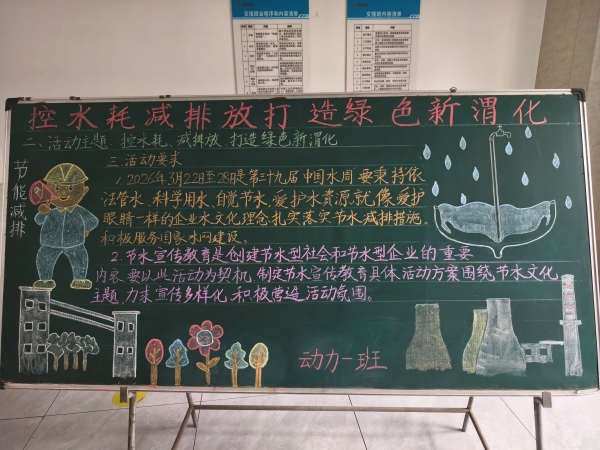 交接班会程序和内容清单
交接班内容清单
控水耗减排放打造绿色新渭化
二、活动主题：控水耗、减排放、打造绿色新渭化
节能减排
三、活动要求
1.2026年3月22日至28日是第三十九届中国水周,要秉持依
法管水、科学用水、自觉节水,爱护水资源就像爱护
眼睛一样的企业水文化理念,扎实落实节水减排措施。
积极服务国家水网建设。
2.节水宣传教育是创建节水型社会和节水型企业的重要
内容,要以此活动为契机,制定节水宣传教育具体活动方案围绕节水文化
主题,力求宣传多样化,积极营造活动氛围。
动力一班